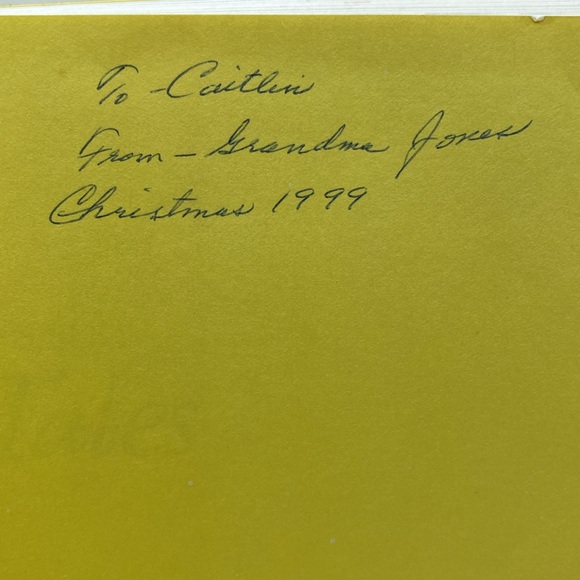 To - Caitlin
From - Grandma Jones
Christmas 1999